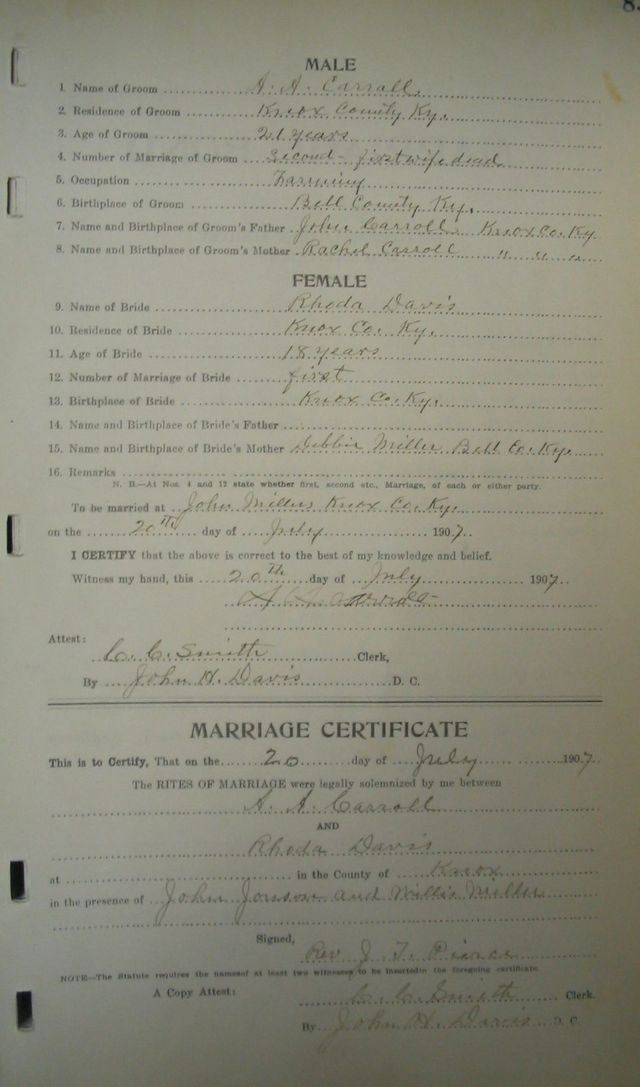 8.
MALE
1. Name of Groom A. A. Carroll
2. Residence of Groom Knox County Ky.
3. Age of Groom 21 years
4. Number of Marriage of Groom Second - first wife dead
5. Occupation Farming
6. Birthplace of Groom Bell County Ky.
7. Name and Birthplace of Groom's Father John Carroll Knox Co. Ky
8. Name and Birthplace of Groom's Mother Rachel Carroll " " "
FEMALE
9. Name of Bride Rhoda Davis
10. Residence of Bride Knox Co. Ky.
11. Age of Bride 18 years
12. Number of Marriage of Bride first
13. Birthplace of Bride Knox Co. Ky.
14. Name and Birthplace of Bride's Father
15. Name and Birthplace of Bride's Mother Debbie Miller Bell Co. Ky.
16. Remarks
N. B.—At Nos. 4 and 12 state whether first, second etc., Marriage, of each or either party.
To be married at John Millers Knox Co. Ky.
on the 20th day of July 1907.
I CERTIFY that the above is correct to the best of my knowledge and belief.
Witness my hand, this 20th day of July 1907
A. A. Carroll
Attest:
C. C. Smith Clerk,
By John H. Davis D. C.
MARRIAGE CERTIFICATE
This is to Certify, That on the 20 day of July 1907
The RITES OF MARRIAGE were legally solemnized by me between
A. A. Carroll
AND
Rhoda Davis
at in the County of Knox
in the presence of John Jonson and Willis Miller
Signed,
Rev J. T. Pierce
NOTE—The Statute requires the names of at least two witnesses to be inserted in the foregoing certificate
A Copy Attest: C. C. Smith Clerk.
By John H. Davis D. C.